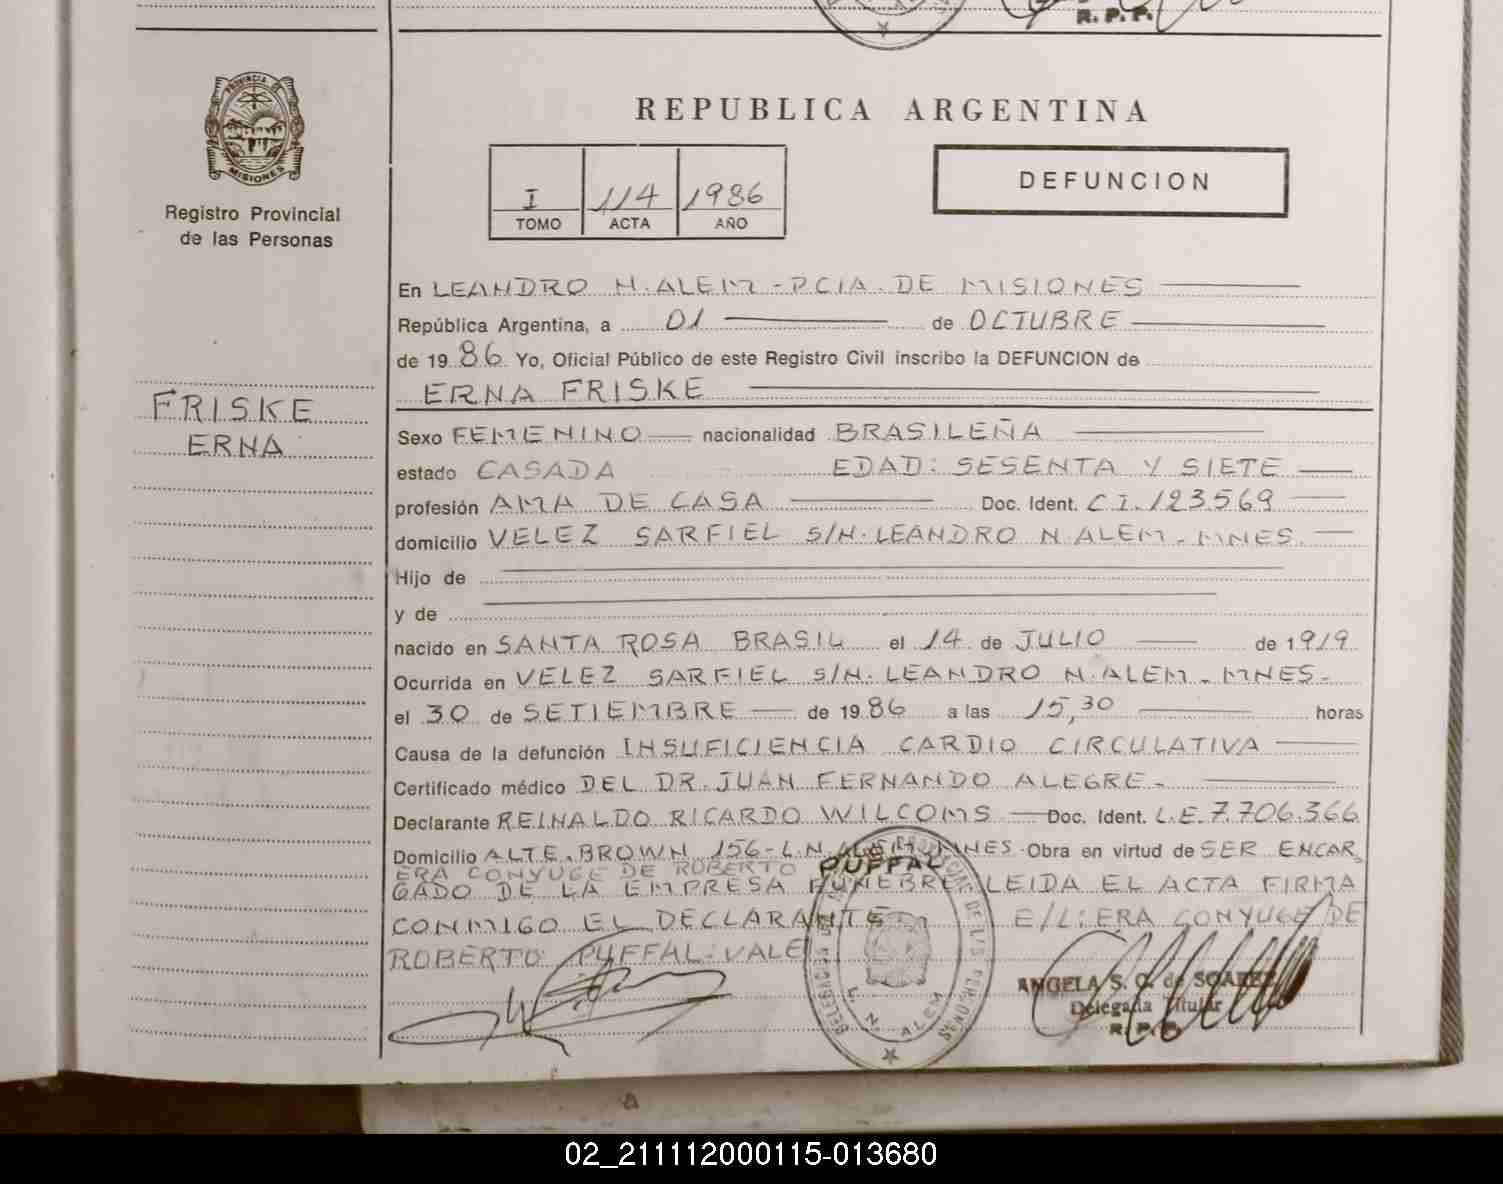 R. P. P.
PROVINCIA DE
MISIONES
Registro Provincial
de las Personas
FRISKE
ERNA
REPUBLICA ARGENTINA
I 114 1986
TOMO ACTA AÑO
DEFUNCION
En LEANDRO N. ALEM - PCIA. DE MISIONES
República Argentina, a 01 de OCTUBRE
de 19 86 Yo, Oficial Público de este Registro Civil inscribo la DEFUNCION de
ERNA FRISKE
Sexo FEMENINO nacionalidad BRASILEÑA
estado CASADA EDAD: SESENTA Y SIETE
profesión AMA DE CASA Doc. Ident. C.I. 123569
domicilio VELEZ SARFIEL S/N. LEANDRO N. ALEM - MNES.
Hijo de
y de
nacido en SANTA ROSA BRASIL el 14 de JULIO de 1919
Ocurrida en VELEZ SARFIEL S/N. LEANDRO N. ALEM - MNES.
el 30 de SETIEMBRE de 19 86 a las 15,30 horas
Causa de la defunción INSUFICIENCIA CARDIO CIRCULATIVA
Certificado médico DEL DR. JUAN FERNANDO ALEGRE.
Declarante REINALDO RICARDO WILCOMS Doc. Ident. L.E. 7.706.366
Domicilio ALTE. BROWN 156 - L.N. ALEM MNES Obra en virtud de SER ENCAR
ERA CONYUGE DE ROBERTO PUFFAL
GADO DE LA EMPRESA FUNEBRE. LEIDA EL ACTA FIRMA
CONMIGO EL DECLARANTE E/L: ERA CONYUGE DE
ROBERTO PUFFAL: VALE
L. N. ALEM
ANGELA S. C. de SOAREZ
Delegada Titular
R. P. P.
02_211112000115-013680